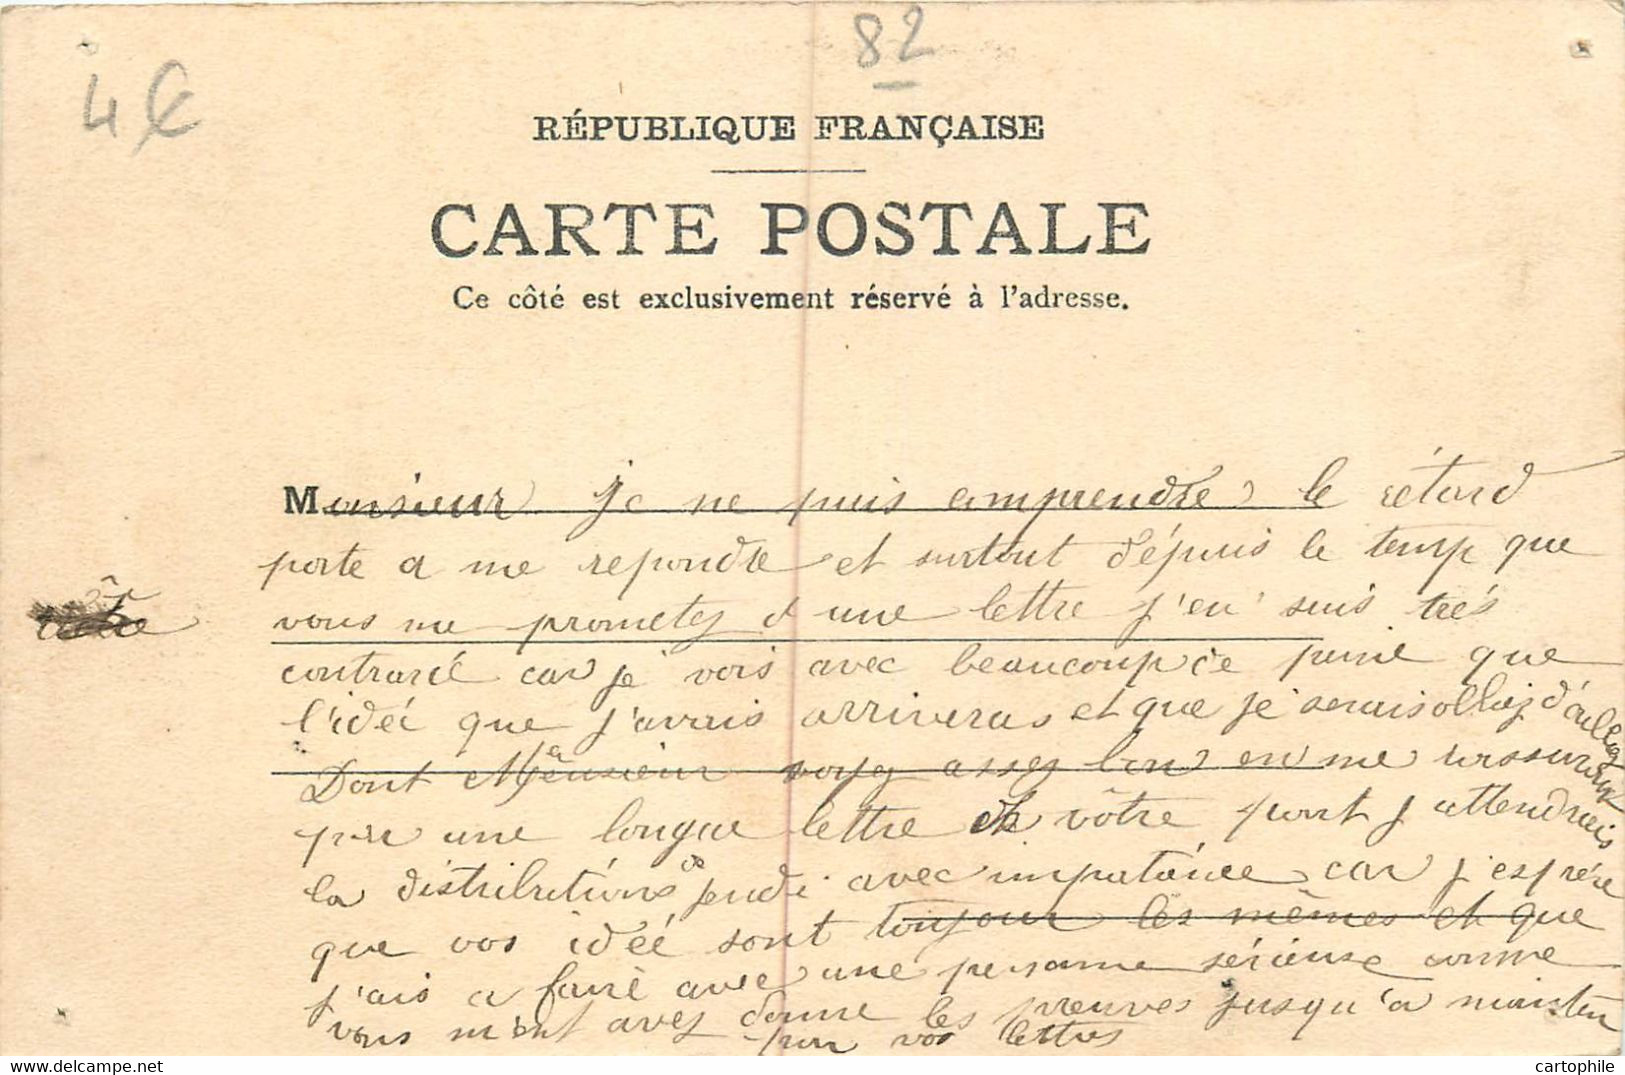 82
4 €
RÉPUBLIQUE FRANÇAISE
CARTE POSTALE
Ce côté est exclusivement réservé à l'adresse.
Monsieur je ne puis comprendre le rétard
porte a me repondre et surtout dépuis le temp que
vous me prometez d une lettre j'en suis trés
contrarié car je vois avec beaucoup de peine que
l'idéé que j'avais arriveras et que je serais olliez d'oublier
Dont Monsieur soyez assez bon en me rassurant
par une longue lettre de vôtre part j attendrais
la distributions de jeudi avec impatiance car j'esprére
que vos idéé sont toujour les mêmes et que
j'ais a faire avec une personne sérieuse comme
vous m'ent avez donne les preuves jusqu'a mainten
par vos lettres
cartophile